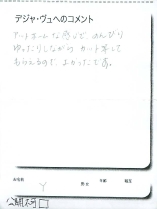 デジャ・ヴュへのコメント
アットホームな感じで、のんびり
ゆったりしながら カットをして
もらえるので、よかったです。
お名前 Y 男・女 年齢 職業
公開不可□